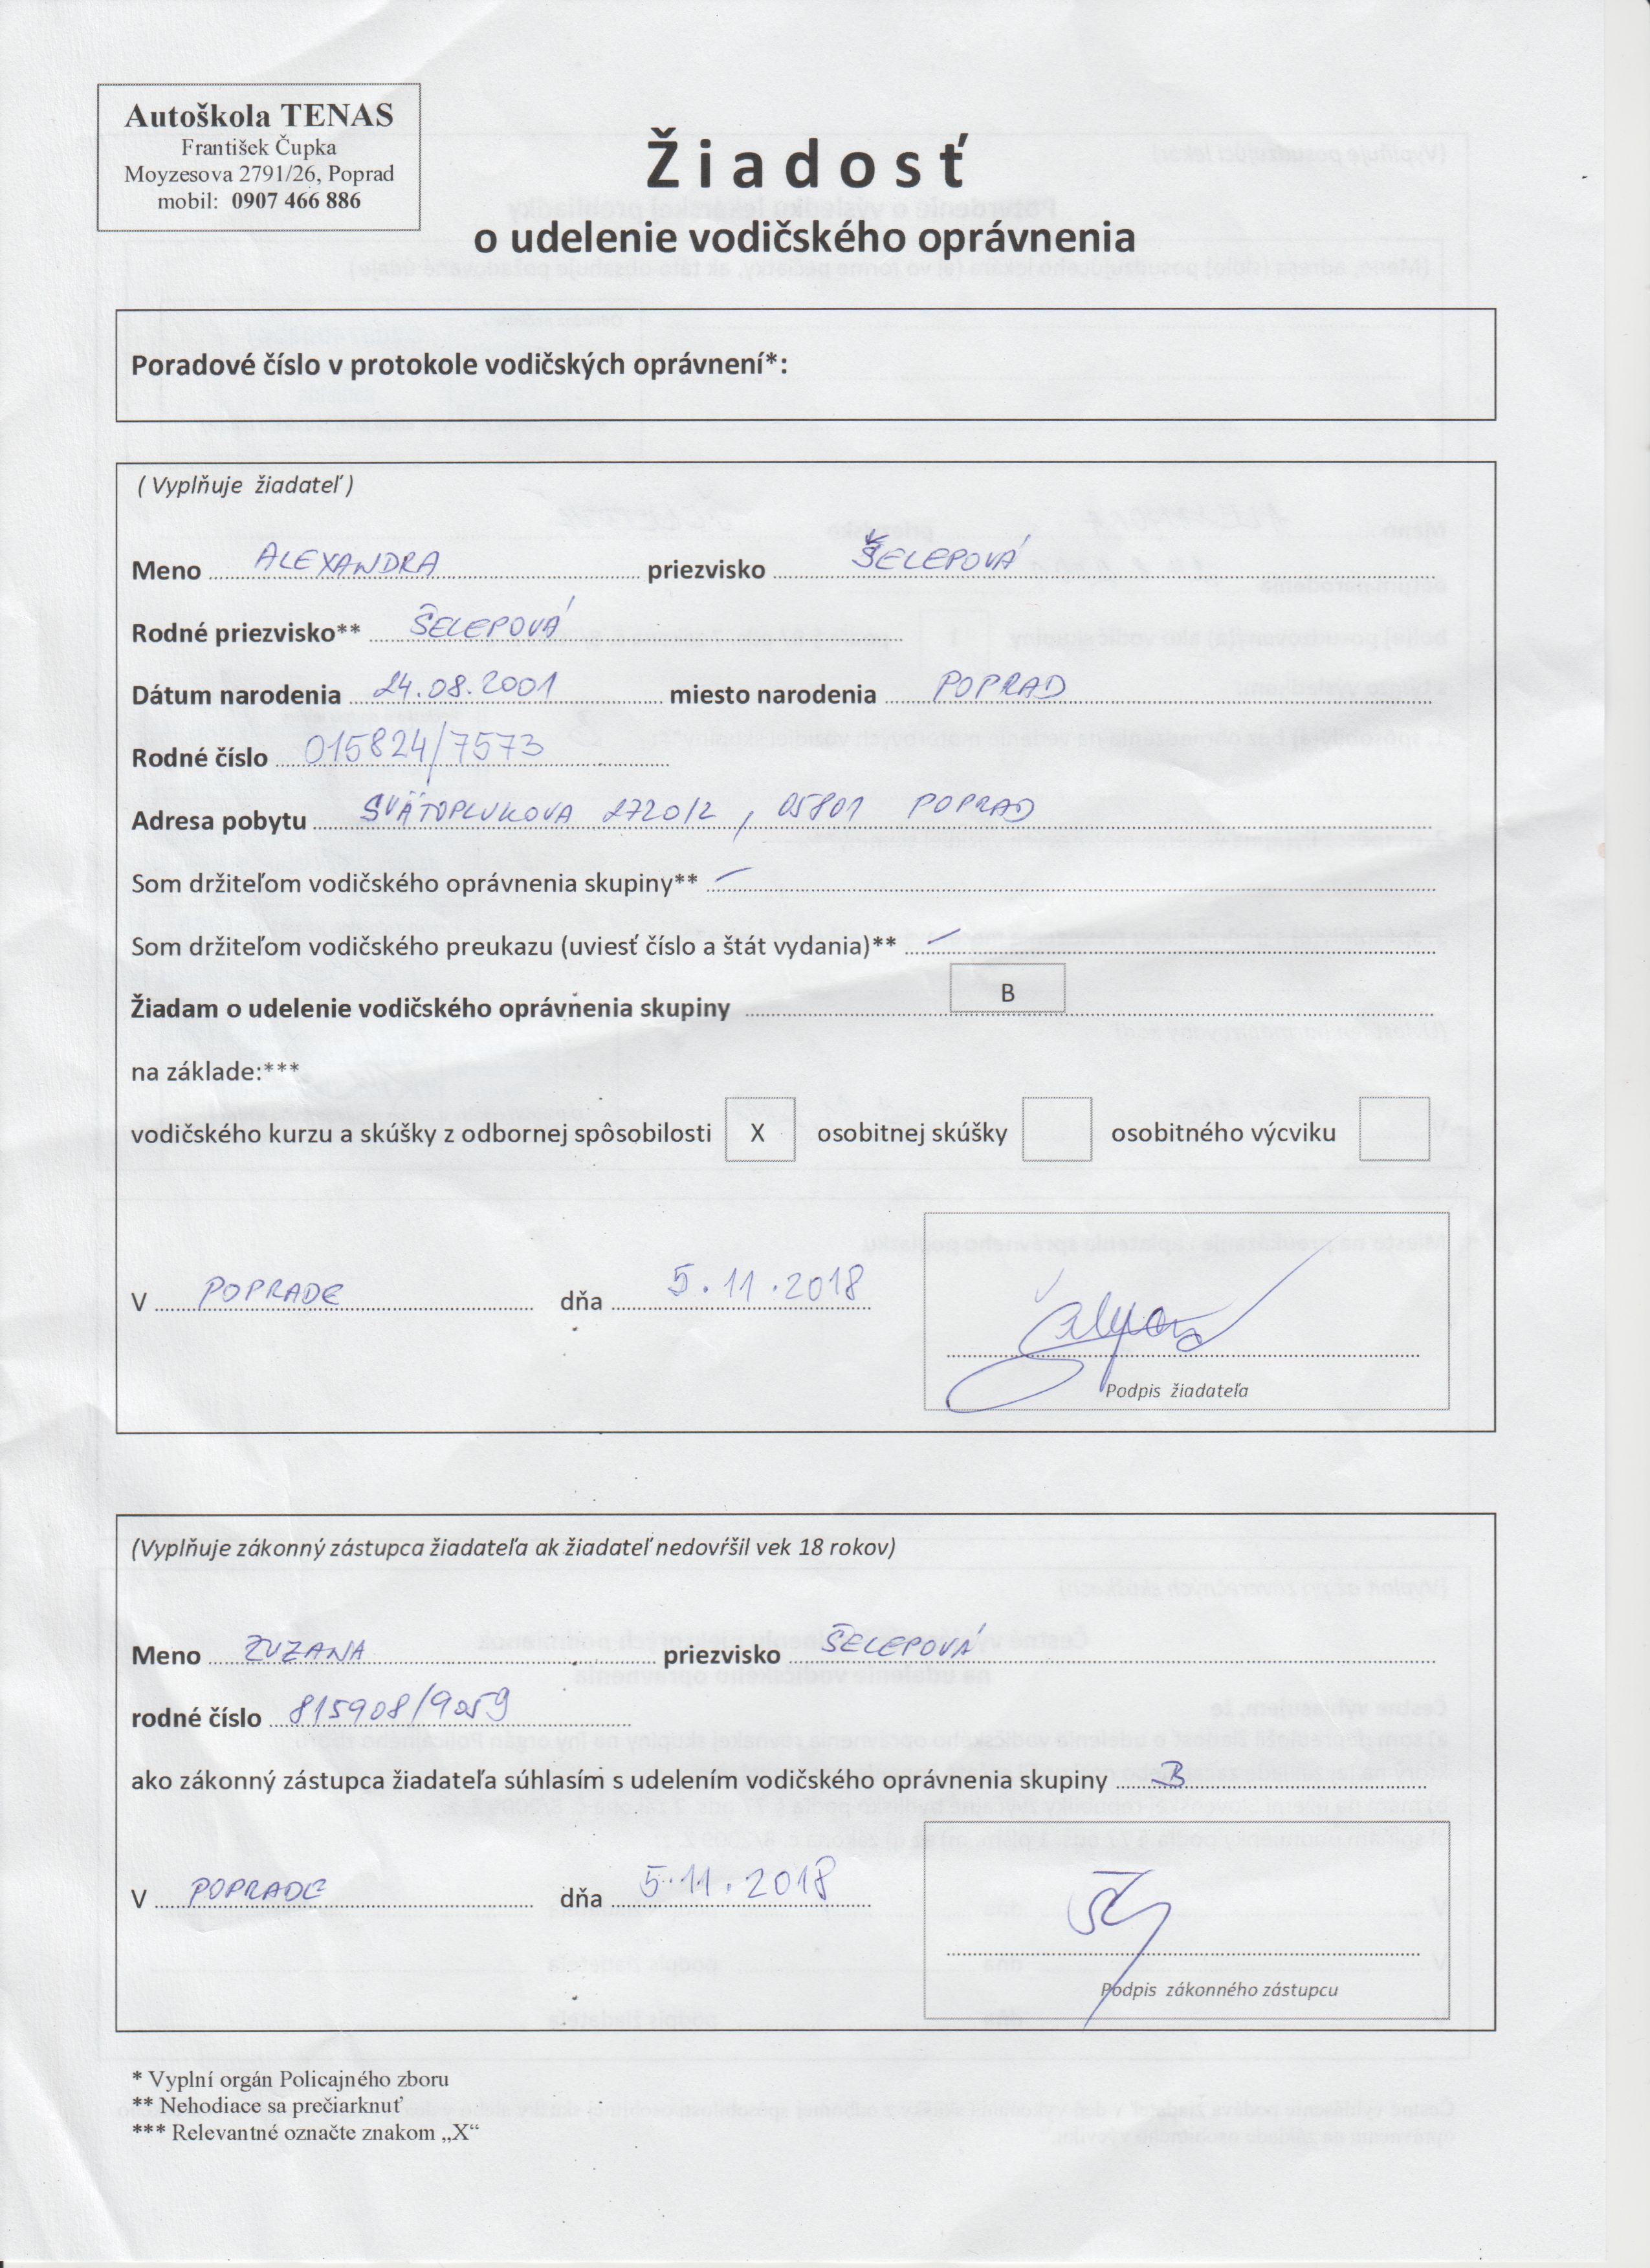 Autoškola TENAS
František Čupka
Moyzesova 2791/26, Poprad
mobil: 0907 466 886
Žiadosť
o udelenie vodičského oprávnenia
Poradové číslo v protokole vodičských oprávnení*:
( Vyplňuje žiadateľ )
Meno ALEXANDRA priezvisko ŠELEPOVÁ
Rodné priezvisko** ŠELEPOVÁ
Dátum narodenia 24.08.2001 miesto narodenia POPRAD
Rodné číslo 015824/7573
Adresa pobytu SVÄTOPLUKOVA 2720/2, 05801 POPRAD
Som držiteľom vodičského oprávnenia skupiny** –
Som držiteľom vodičského preukazu (uviesť číslo a štát vydania)** –
Žiadam o udelenie vodičského oprávnenia skupiny B
na základe:***
vodičského kurzu a skúšky z odbornej spôsobilosti X osobitnej skúšky osobitného výcviku
V POPRADE dňa 5.11.2018
Podpis žiadateľa
(Vyplňuje zákonný zástupca žiadateľa ak žiadateľ nedovŕšil vek 18 rokov)
Meno ZUZANA priezvisko ŠELEPOVÁ
rodné číslo 815908/9059
ako zákonný zástupca žiadateľa súhlasím s udelením vodičského oprávnenia skupiny B
V POPRADE dňa 5.11.2018
Podpis zákonného zástupcu
* Vyplní orgán Policajného zboru
** Nehodiace sa prečiarknuť
*** Relevantné označte znakom „X“